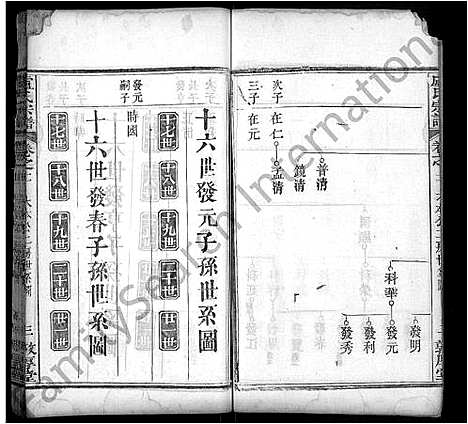 盧氏宗譜
普清
鏡清
次子 在仁 孟清
三子 在元
發明
科華 發元
發利
發秀
敦厚堂
十六世發元子孫世系圖
十七世 十八世 十九世 二十世 廿一世
發元嗣子 時國
十六世發春子孫世系圖
十七世 十八世 十九世 二十世 廿一世
FamilySearch International